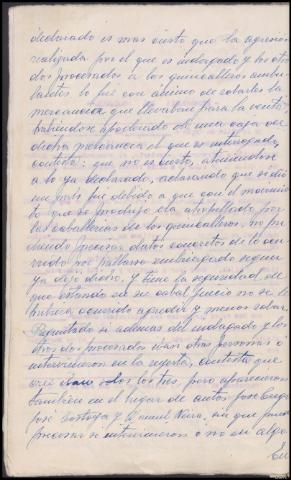 declarado es mas cierto que la agresion
realizada por el que es indagado y los otros
dos procesados a los quincalleros ambu-
lantes lo fue con animo de robarles la
mercancia que llevaban para la venta,
habiendose apoderado de una caja de
dicha mercancia el que es interrogado,
contesta: que no es cierto, ateniendose
a lo ya declarado, aclarando que si dió
un fue debido a que con el movimien
to que se produjo era atropellado por
las caballerias de los quincalleros, no pu
diendo precisar datos concretos de lo ocu
rrido por hallarse embriagado segun
ya dejo dicho, y tiene la seguridad de
que estando en su cabal juicio no se le
hubiera ocurrido agredir y menos robar.
Preguntado si ademas del indagado y los
otros dos procesados otras personas
intervinieron en la reyerta, contesta que
eran los tres, pero aparecieron
tambien en el lugar de autos José
José y Manuel Neira, sin que pueda
precisar si intervinieron o no en algo.